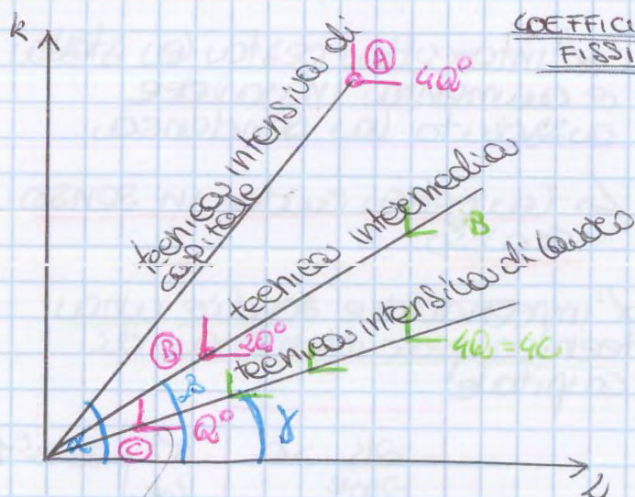 k
COEFFICI
FISSI
A
4Q°
tecnica intensiva di
capitale
tecnica intermedia
B
tecnica intensiva di lavoro
B
2Q°
4Q = 4C
C
Q°
α
β
γ
L